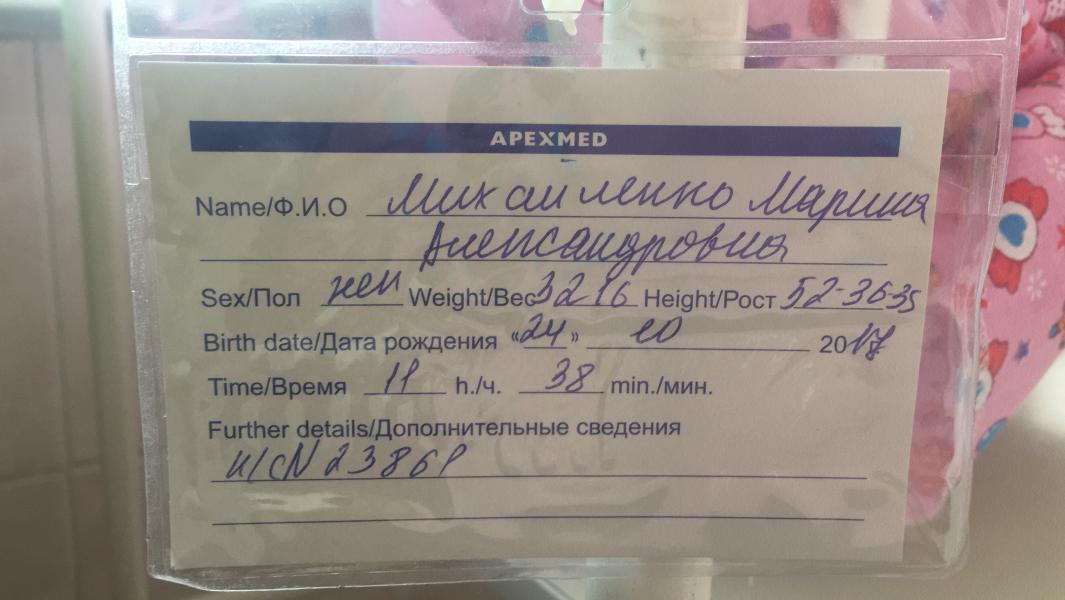 APEXMED
Name/Ф.И.О Михайленко Марина
Александровна
Sex/Пол жен Weight/Вес 3216 Height/Рост 52-36-35
Birth date/Дата рождения «24» 10 2017
Time/Время 11 h./ч. 38 min./мин.
Further details/Дополнительные сведения
и/с N 23869